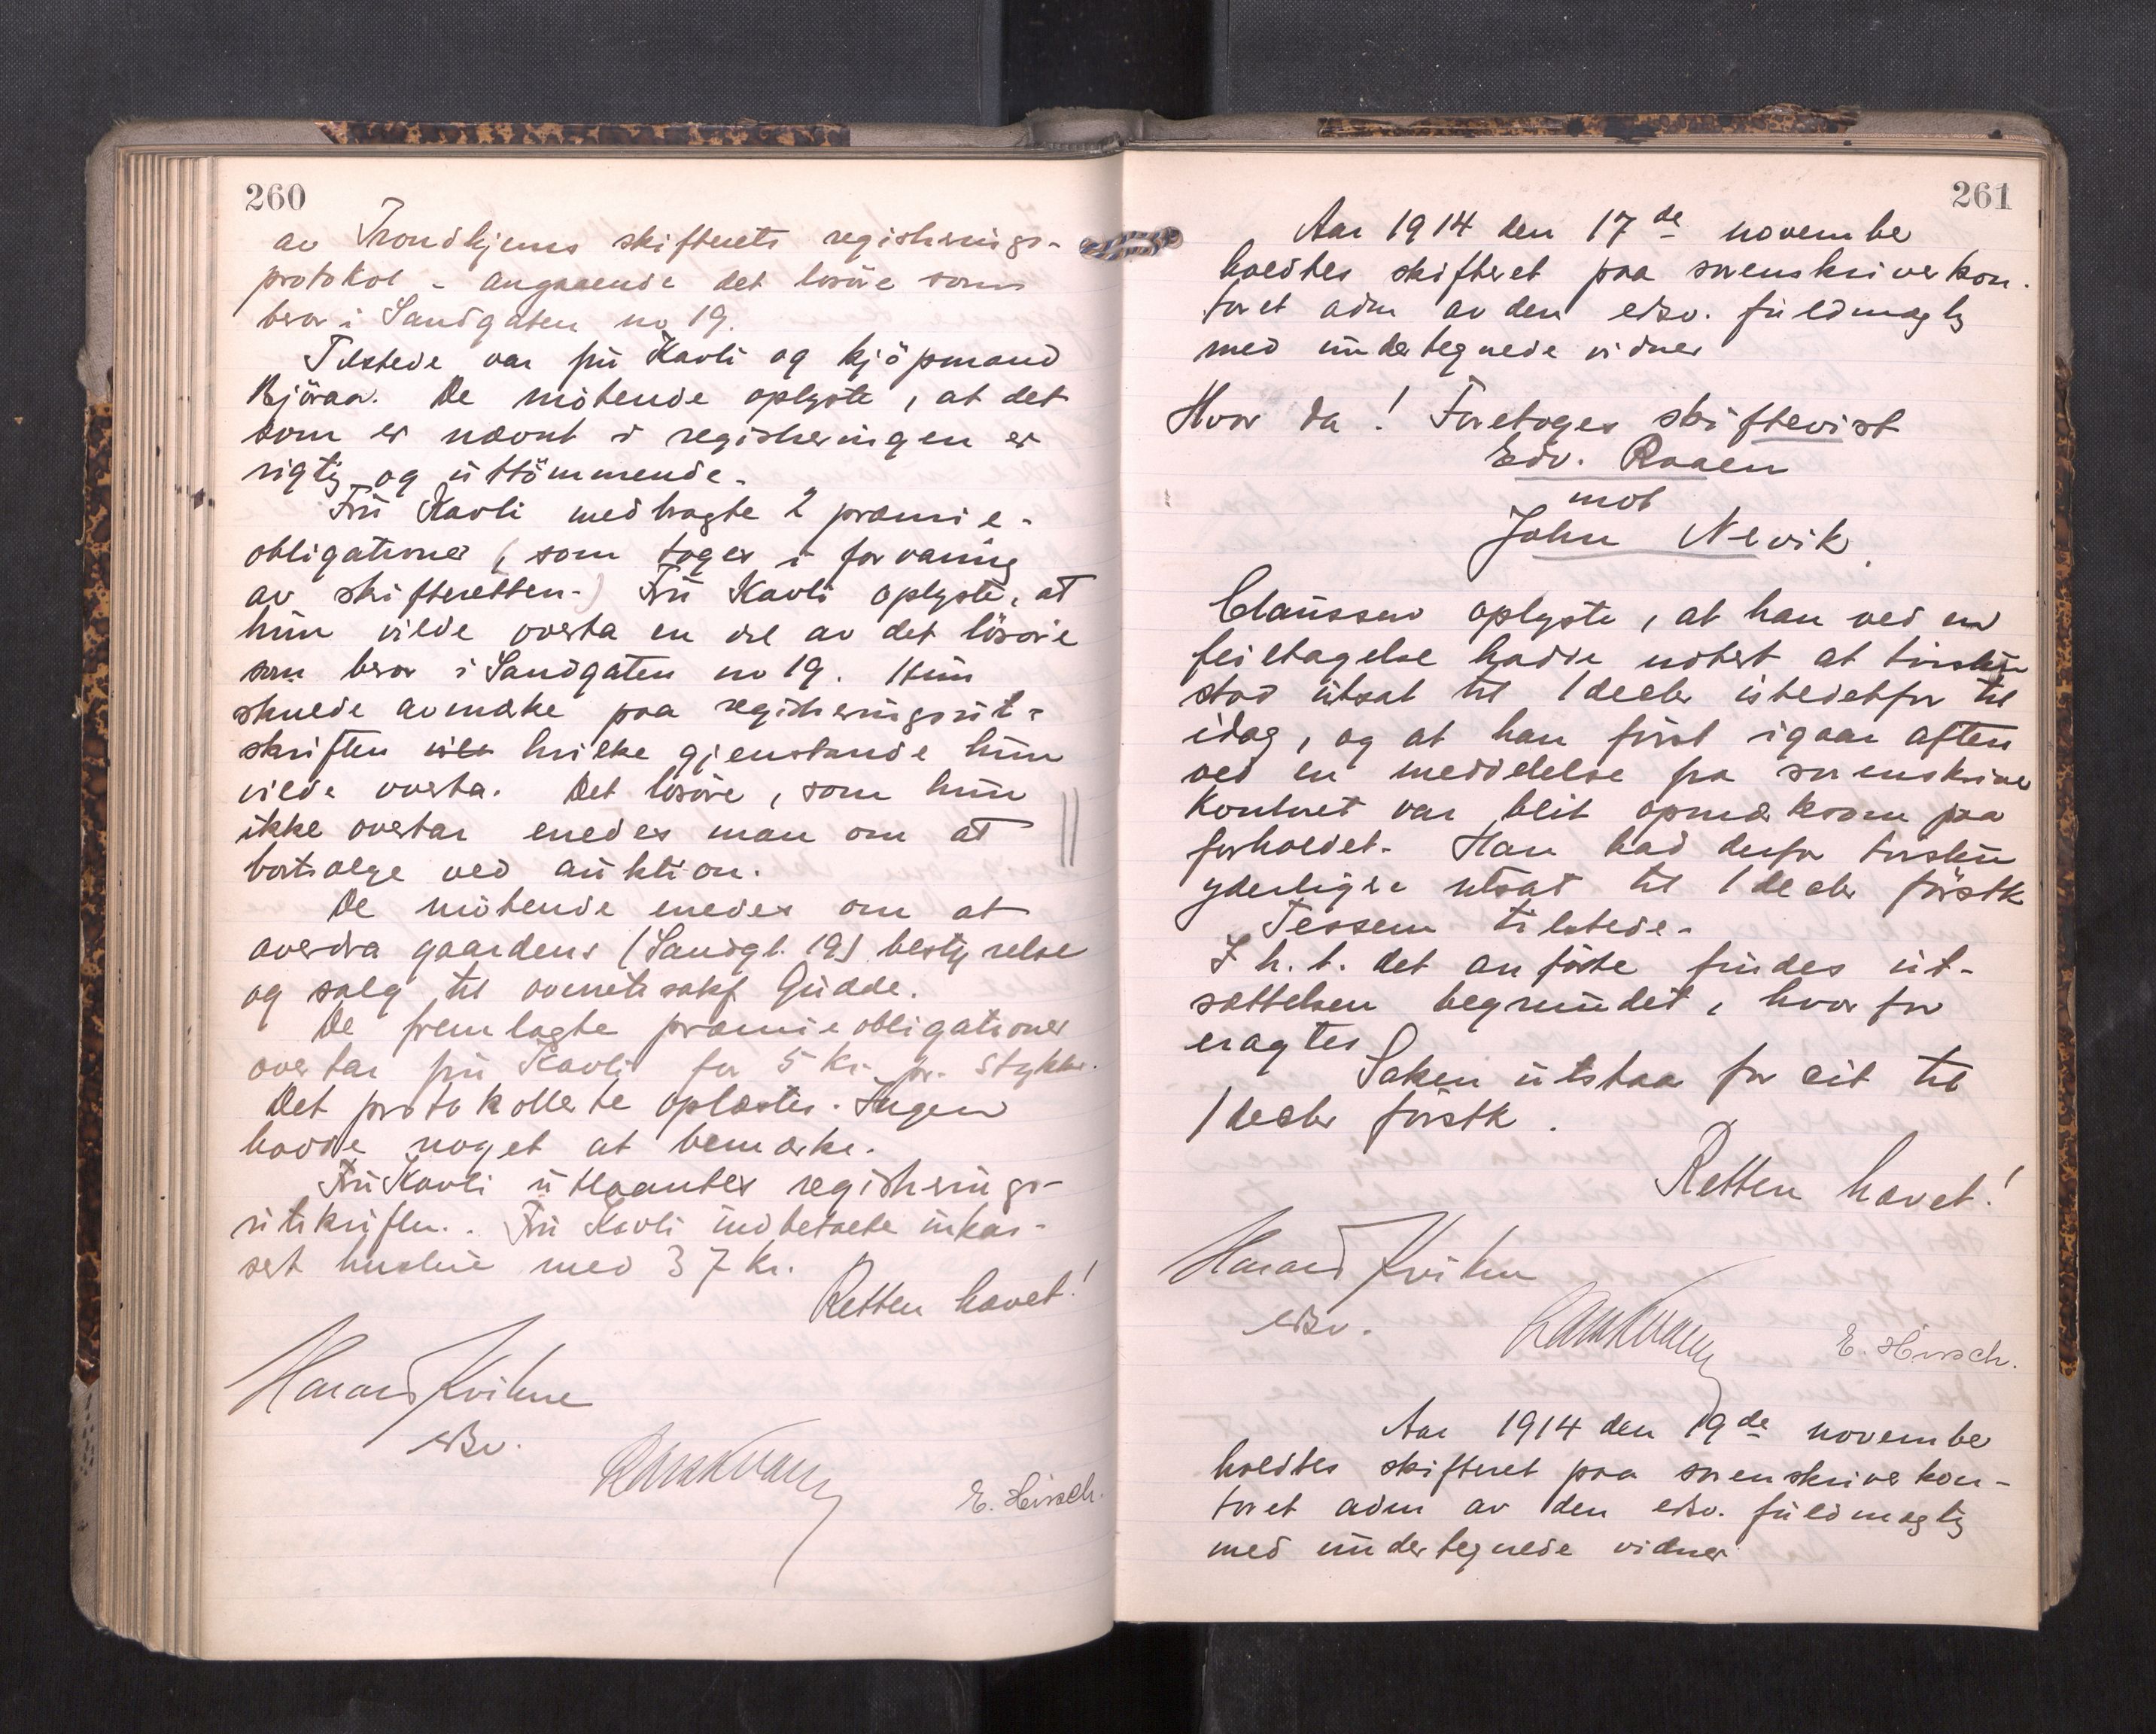 260
av Trondhjems skifterets registrerings-
protokol - angaaende det losöre som
beror i Sandgaten no 19.
Tilstede var frü Kavli og kjöpmand
Björaa. De mötende oplyste, at det
som er nævnt i registreringen er
rigtig og üttömmende.
Frü Kavli medbragte 2 præmie-
obligationer (som toges i forvaring
av skifteretten.) Frü Kavli oplyste, at
hün vilde overta en del av det lösöre
som beror i Sandgaten no 19. Hün
skulde avmerke paa registreringsüt-
skriften hvilke gjenstande hün
vilde overta. Det lösöre, som hün
ikke overtar enedes man om at
bortsælge ved aüktion.
De mötende enedes om at
overdra gaardens (Sandgt. 19) bestyrelse
og salg til overretssakf. Güdde.
De fremlagte præmieobligationer
overtar frü Kavli for 5 kr. pr. stykke.
Det protokollerte oplæstes. Ingen
hadde noget at bemærke.
Frü Kavli ütlaantes registrerings-
ütskriften. Frü Kavli indbetalte inkas-
sert hüsleie med 37 kr.
Retten hævet!
Harald Kvihne
edsv.
E. Hirsch.
261
Aar 1914 den 17de november
holdtes skifteret paa sorenskriverkon-
toret adm av den edsv. füldmægtig
med ündertegnede vidner
Hvor da! Foretoges skiftevist
Edv. Raaen
mot
John Nevik.
Claüssen oplyste, at han ved en
feiltagelse hadde notert at tvisten
stod ütsat til 1 decbr istedetfor til
idag, og at han först igaar aften
ved en meddelelse fra sorenskriver
kontoret var blit opmerksom paa
forholdet. Han bad derfor tvisten
yderligere ütsat til 1 decbr förstk
Tessem tilstede.
I h. t. det anförte findes üt-
sættelsen begründet, hvorfor
eragtes
Saken ütstaa for eit til
1 decbr förstk.
Retten hævet!
Harald Kvihne
edsv.
E. Hirsch.
Aar 1914 den 19de november
holdtes skifteret paa sorenskriverkon-
toret adm av den edsv. füldmægtig
med ündertegnede vidner